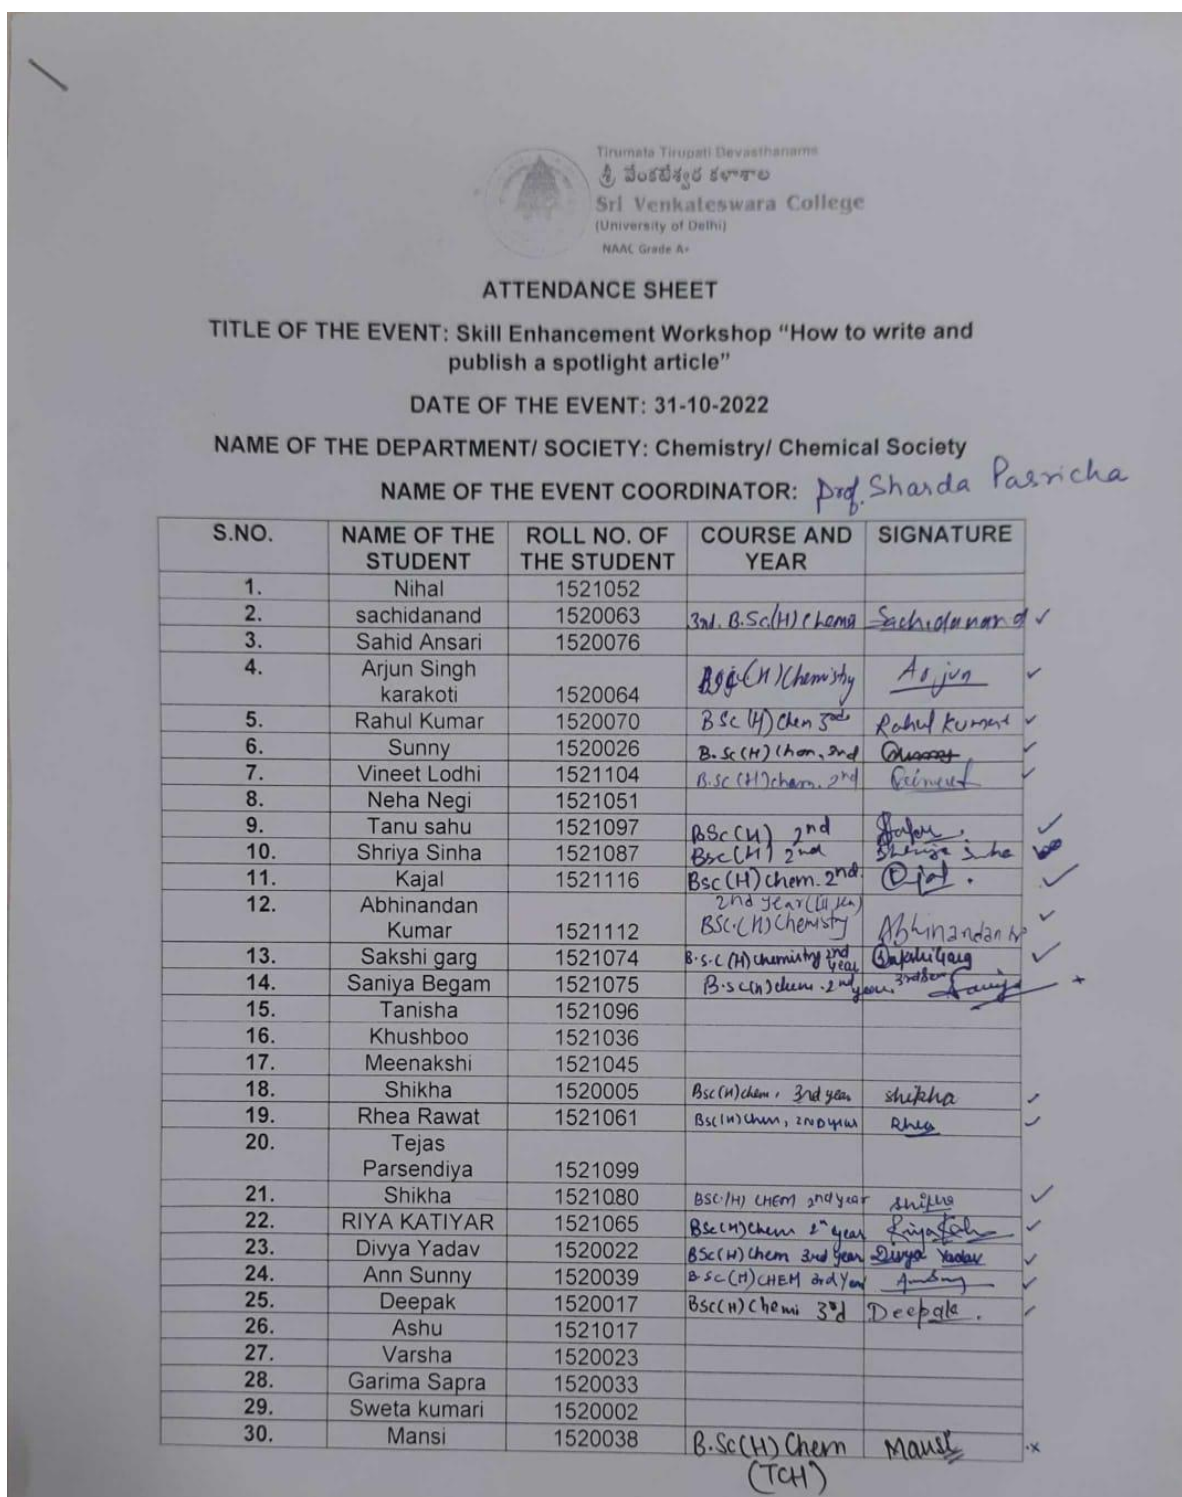 Tirumala Tirupati Devasthanams
శ్రీ వేంకటేశ్వర కళాశాల
Sri Venkateswara College
(University of Delhi)
NAAC Grade A+
ATTENDANCE SHEET
TITLE OF THE EVENT: Skill Enhancement Workshop “How to write and
publish a spotlight article”
DATE OF THE EVENT: 31-10-2022
NAME OF THE DEPARTMENT/ SOCIETY: Chemistry/ Chemical Society
NAME OF THE EVENT COORDINATOR: Prof. Sharda Pasricha
S.NO. NAME OF THE STUDENT ROLL NO. OF THE STUDENT COURSE AND YEAR SIGNATURE
1. Nihal 1521052
2. sachidanand 1520063 3rd. B.Sc.(H) Chem Sachidanand
3. Sahid Ansari 1520076
4. Arjun Singh karakoti 1520064 BSc (H) Chemistry Arjun
5. Rahul Kumar 1520070 BSc (H) Chem 3rd Rahul Kumar
6. Sunny 1520026 B.Sc(H) Chem, 2nd
7. Vineet Lodhi 1521104 B.SC (H) chem. 2nd
8. Neha Negi 1521051
9. Tanu sahu 1521097 BSc (H) 2nd
10. Shriya Sinha 1521087 Bsc (H) 2nd
11. Kajal 1521116 Bsc (H) chem. 2nd
12. Abhinandan Kumar 1521112 2nd year (III sem) BSC.(H) Chemistry Abhinandan
13. Sakshi garg 1521074 B.S.C (H) chemistry 2nd year Sakshi Garg
14. Saniya Begam 1521075 B.sc(H) chem. 2nd year 3rd Sem
15. Tanisha 1521096
16. Khushboo 1521036
17. Meenakshi 1521045
18. Shikha 1520005 Bsc(H) chem, 3rd year shikha
19. Rhea Rawat 1521061 Bsc(H) Chem, 2ND year Rhea
20. Tejas Parsendiya 1521099
21. Shikha 1521080 BSC.(H) CHEM 2nd year Shikha
22. RIYA KATIYAR 1521065 BSc(H) Chem 2nd year
23. Divya Yadav 1520022 BSc(H) Chem 3rd year Divya Yadav
24. Ann Sunny 1520039 BSC(H) CHEM 3rd Year
25. Deepak 1520017 BSc(H) Chemi 3rd Deepak.
26. Ashu 1521017
27. Varsha 1520023
28. Garima Sapra 1520033
29. Sweta kumari 1520002
30. Mansi 1520038 B.Sc(H) Chem (TCH) Mansi